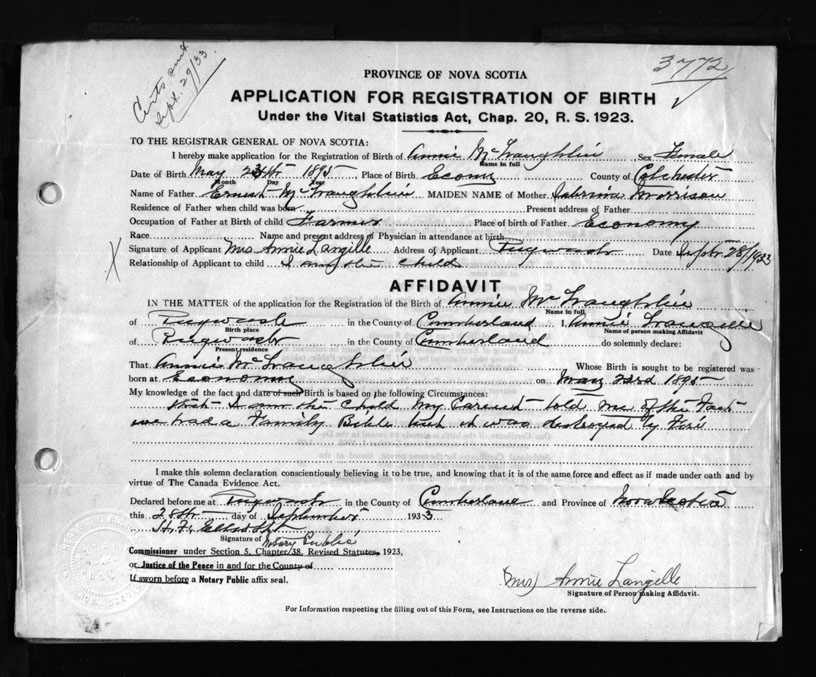 Certs sent
Sept. 29/33.
3772
PROVINCE OF NOVA SCOTIA
APPLICATION FOR REGISTRATION OF BIRTH
Under the Vital Statistics Act, Chap. 20, R. S. 1923.
TO THE REGISTRAR GENERAL OF NOVA SCOTIA:
I hereby make application for the Registration of Birth of Annie McLaughlin Sex Female
Name in full
Date of Birth May 1895 Place of Birth Econy County of Colchester
Month Day Year
Name of Father Ernest McLaughlin MAIDEN NAME of Mother Morrison
Residence of Father when child was born Present address of Father
Occupation of Father at Birth of child Farmer Place of birth of Father Economy
Race Name and present address of Physician in attendance at birth
Signature of Applicant Mrs Annie Langille Address of Applicant Pugwash Date Septr 28/1933
X Relationship of Applicant to child I am the child
AFFIDAVIT
IN THE MATTER of the application for the Registration of the Birth of Annie McLaughlin
Name in full
of Pugwash in the County of Cumberland I, Annie Langille
Birth place Name of person making Affidavit
of Pugwash in the County of Cumberland do solemnly declare:
Present residence
That Annie McLaughlin Whose Birth is sought to be registered was
born at Economy on May 23rd 1895
My knowledge of the fact and date of such Birth is based on the following Circumstances:
that I am the child My Parent told me of the Fact
we had a Family Bible but it was destroyed by Fire
I make this solemn declaration conscientiously believing it to be true, and knowing that it is of the same force and effect as if made under oath and by
virtue of The Canada Evidence Act.
Declared before me at Pugwash in the County of Cumberland and Province of Nova Scotia
this 28th day of September 1933
H. F.
Signature of Notary Public
Commissioner under Section 5, Chapter 38, Revised Statutes, 1923,
or Justice of the Peace in and for the County of
If sworn before a Notary Public affix seal.
(Mrs) Annie Langille
Signature of Person making Affidavit.
For Information respecting the filling out of this Form, see Instructions on the reverse side.